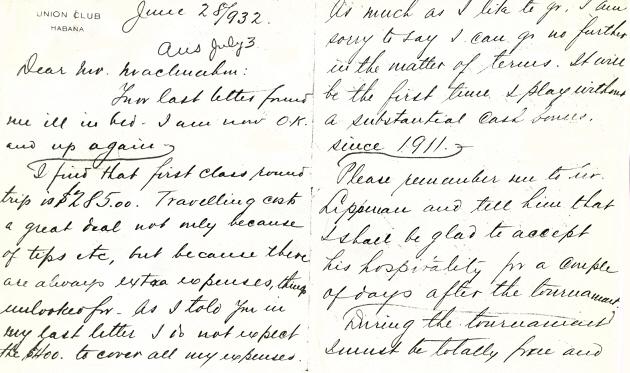 UNION CLUB
HABANA
June 28/932.
Ans July 3
Dear Mr. Maclmahon:
Your last letter found
me ill in bed. I am now O.K.
and up again
I find that first class round
trip is $285.00. Travelling costs
a great deal not only because
of tips etc, but because there
are always extra expenses, things
unlooked for. As I told you in
my last letter I do not expect
the $400. to cover all my expenses.
As much as I like to go, I am
sorry to say I can go no further
in the matter of terms. It will
be the first time I play without
a substantial cash bonus.
since 1911.
Please remember me to Mr.
Lippman and tell him that
I shall be glad to accept
his hospitality for a couple
of days after the tournament.
During the tournament
I must be totally free and